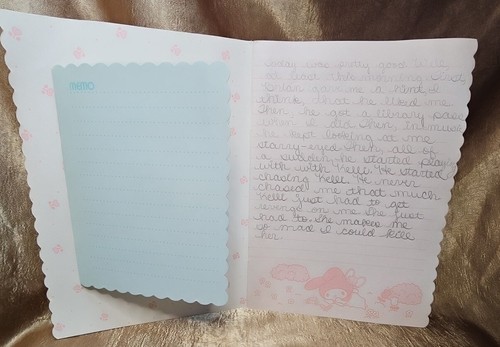 MEMO
Today was pretty good Well
or least this morning. First,
Brian gave me a hint I
think, that he liked me
Then he got a library pass
when I did then, In music
he kept looking at me
starry-eyed then all of
a sudden he started playing
with with Kelli. He started
chasing Kelli He never
chased me that much
Kelli just had to get
revenge on me she just
had to. She makes me
so mad I could kill
her.